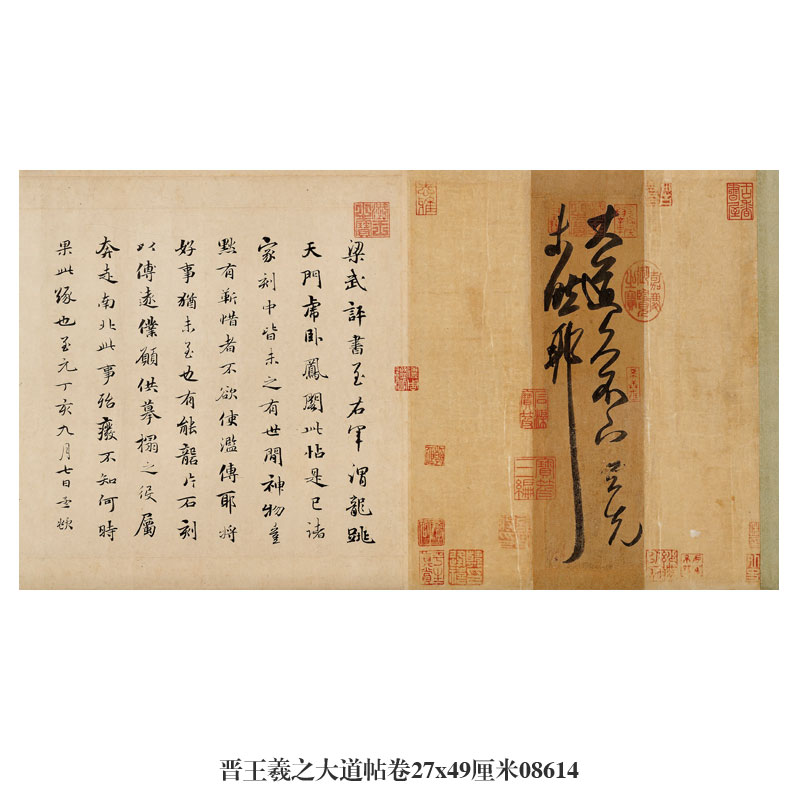 大道久不下与先
未然耶
梁武評書至右軍謂龍跳
天門虎卧鳳閣此帖是已諸
家刻中皆未之有世間神物豈
默有靳惜者不欲使濫傳耶将
好事猶未至也有能龍片石刻
以傳遠僕願供摹搨之役属
奔走南北此事殆癈不知何時
果此緣也至元丁亥九月七日孟頫
嘉慶御覽之寶
古香書屋
寶笈三編
晋王羲之大道帖卷27x49厘米08614